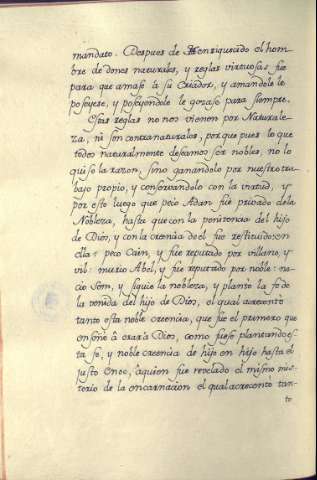 mandato. Despues de Henriquecido el hom-
bre de dones naturales, y reglas virtuosas fue
para que amase à su Criador, y amandole le
poseyese, y poseyendole le gozase para siempre.
Estas reglas no nos vienen por Naturale-
za, ni son contranaturales, porque pues lo que
todos naturalmente deseamos ser nobles, no lo
quiso la razon, sino ganandolo por nuestro tra-
bajo propio, y conservandolo con la virtud, y
por esto luego que peco Adan fue privado de la
Nobleza, hasta que con la penitencia del hijo
de Dios, y con la creencia de el fue restituido en
ella: peco Cain, y fue reputado por villano, y
vil: murio Abel, y fue reputado por noble: na-
cio Sem, y siguio la nobleza, y planto la fe de
la venida del hijo de Dios, el qual acrecento
tanto esta noble creencia, que fue el primero que
enseñe â orar â Dios, como fuese plantando es-
ta fe, y noble creencia de hijo en hijo hasta el
justo Enoc, âquien fue revelado el mismo mis-
terio de la encarnacion el qual acrecento tan-
to